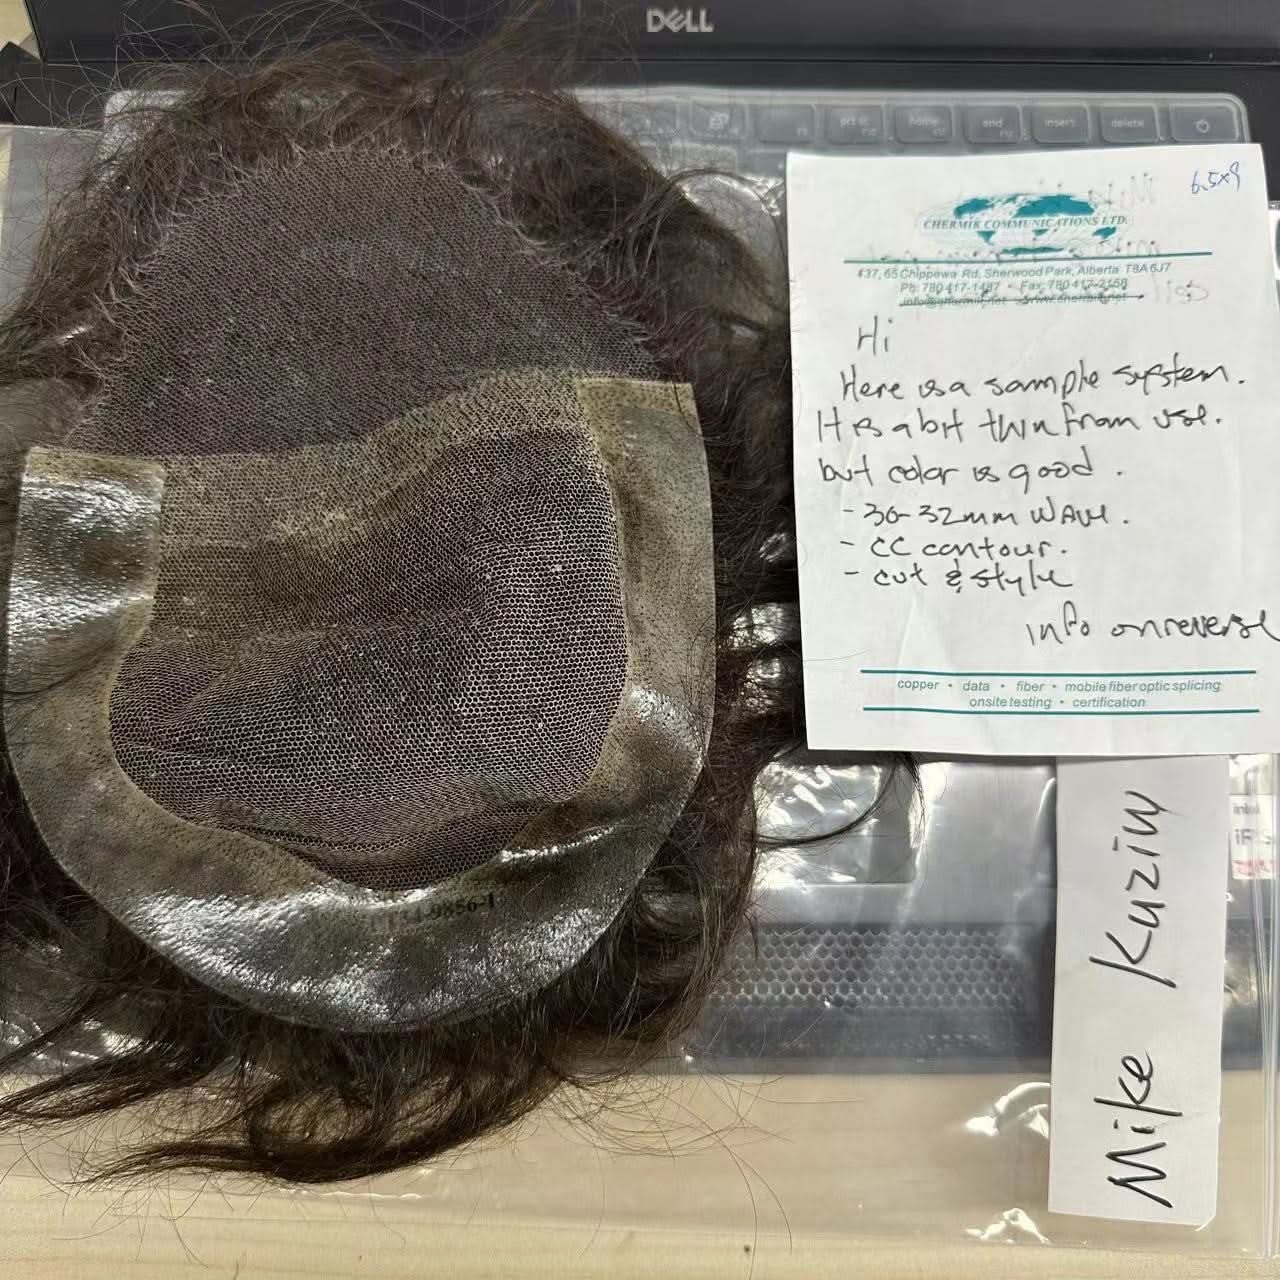 DELL
home
end
insert
delete
6.5x9
CHERMIK COMMUNICATIONS LTD.
#37, 65 Chippewa Rd, Sherwood Park, Alberta T8A 6J7
Ph: 780 417-1487 • Fax: 780 417-2158
Hi
Here is a sample system.
It is a bit thin from use.
but color is good.
- 30-32mm WAVE.
- CC contour.
- cut & style
info on reverse
copper • data • fiber • mobile fiber optic splicing
onsite testing • certification
Mike Kuziw